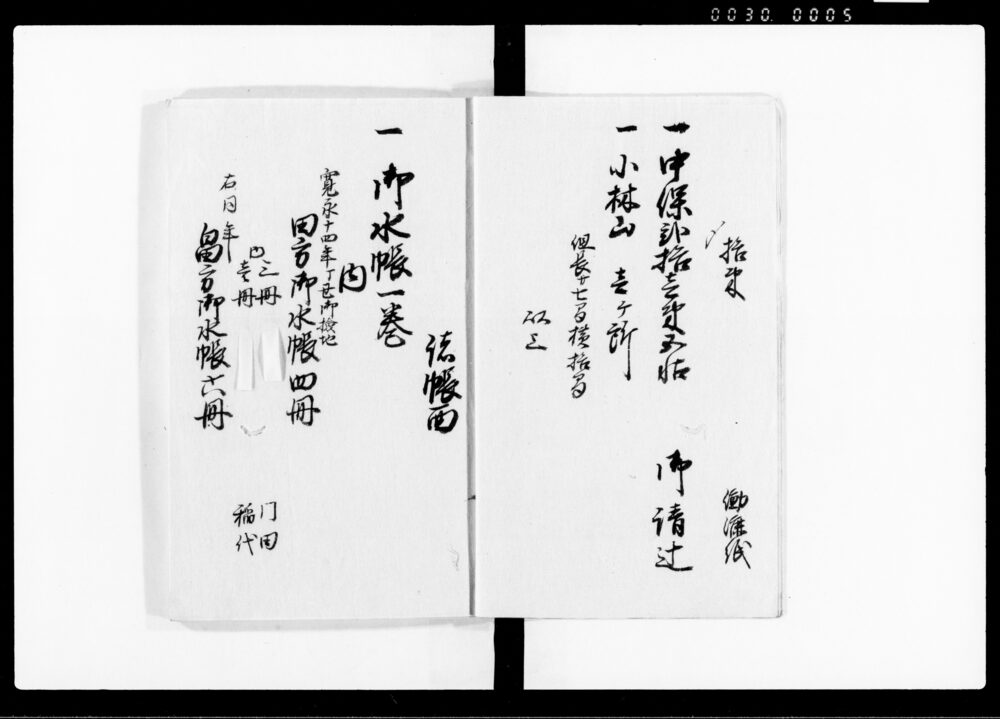 0030. 0005
拾束
御漉紙
一中保訳拾壱束五帖
御請辻
一小林山 壱ヶ所
但長廿七間横拾間
以上
諸帳面
一御水帳一巻
内
寛永十四年丁丑御検地
田方御水帳四冊
内三冊
壱冊
門田
稲代
右同年
畠方御水帳六冊